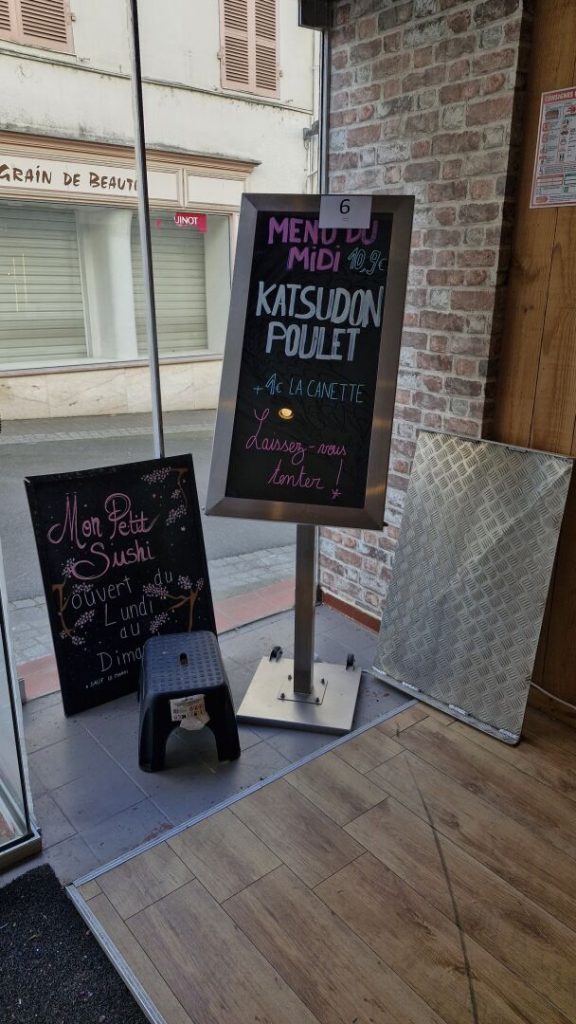 GRAIN DE BEAUTE
6
MENU DU
MIDI 10,9€
KATSUDON
POULET
+ 1€ LA CANETTE
Laissez-vous
tenter !
Mon Petit
Sushi
ouvert du
Lundi
au